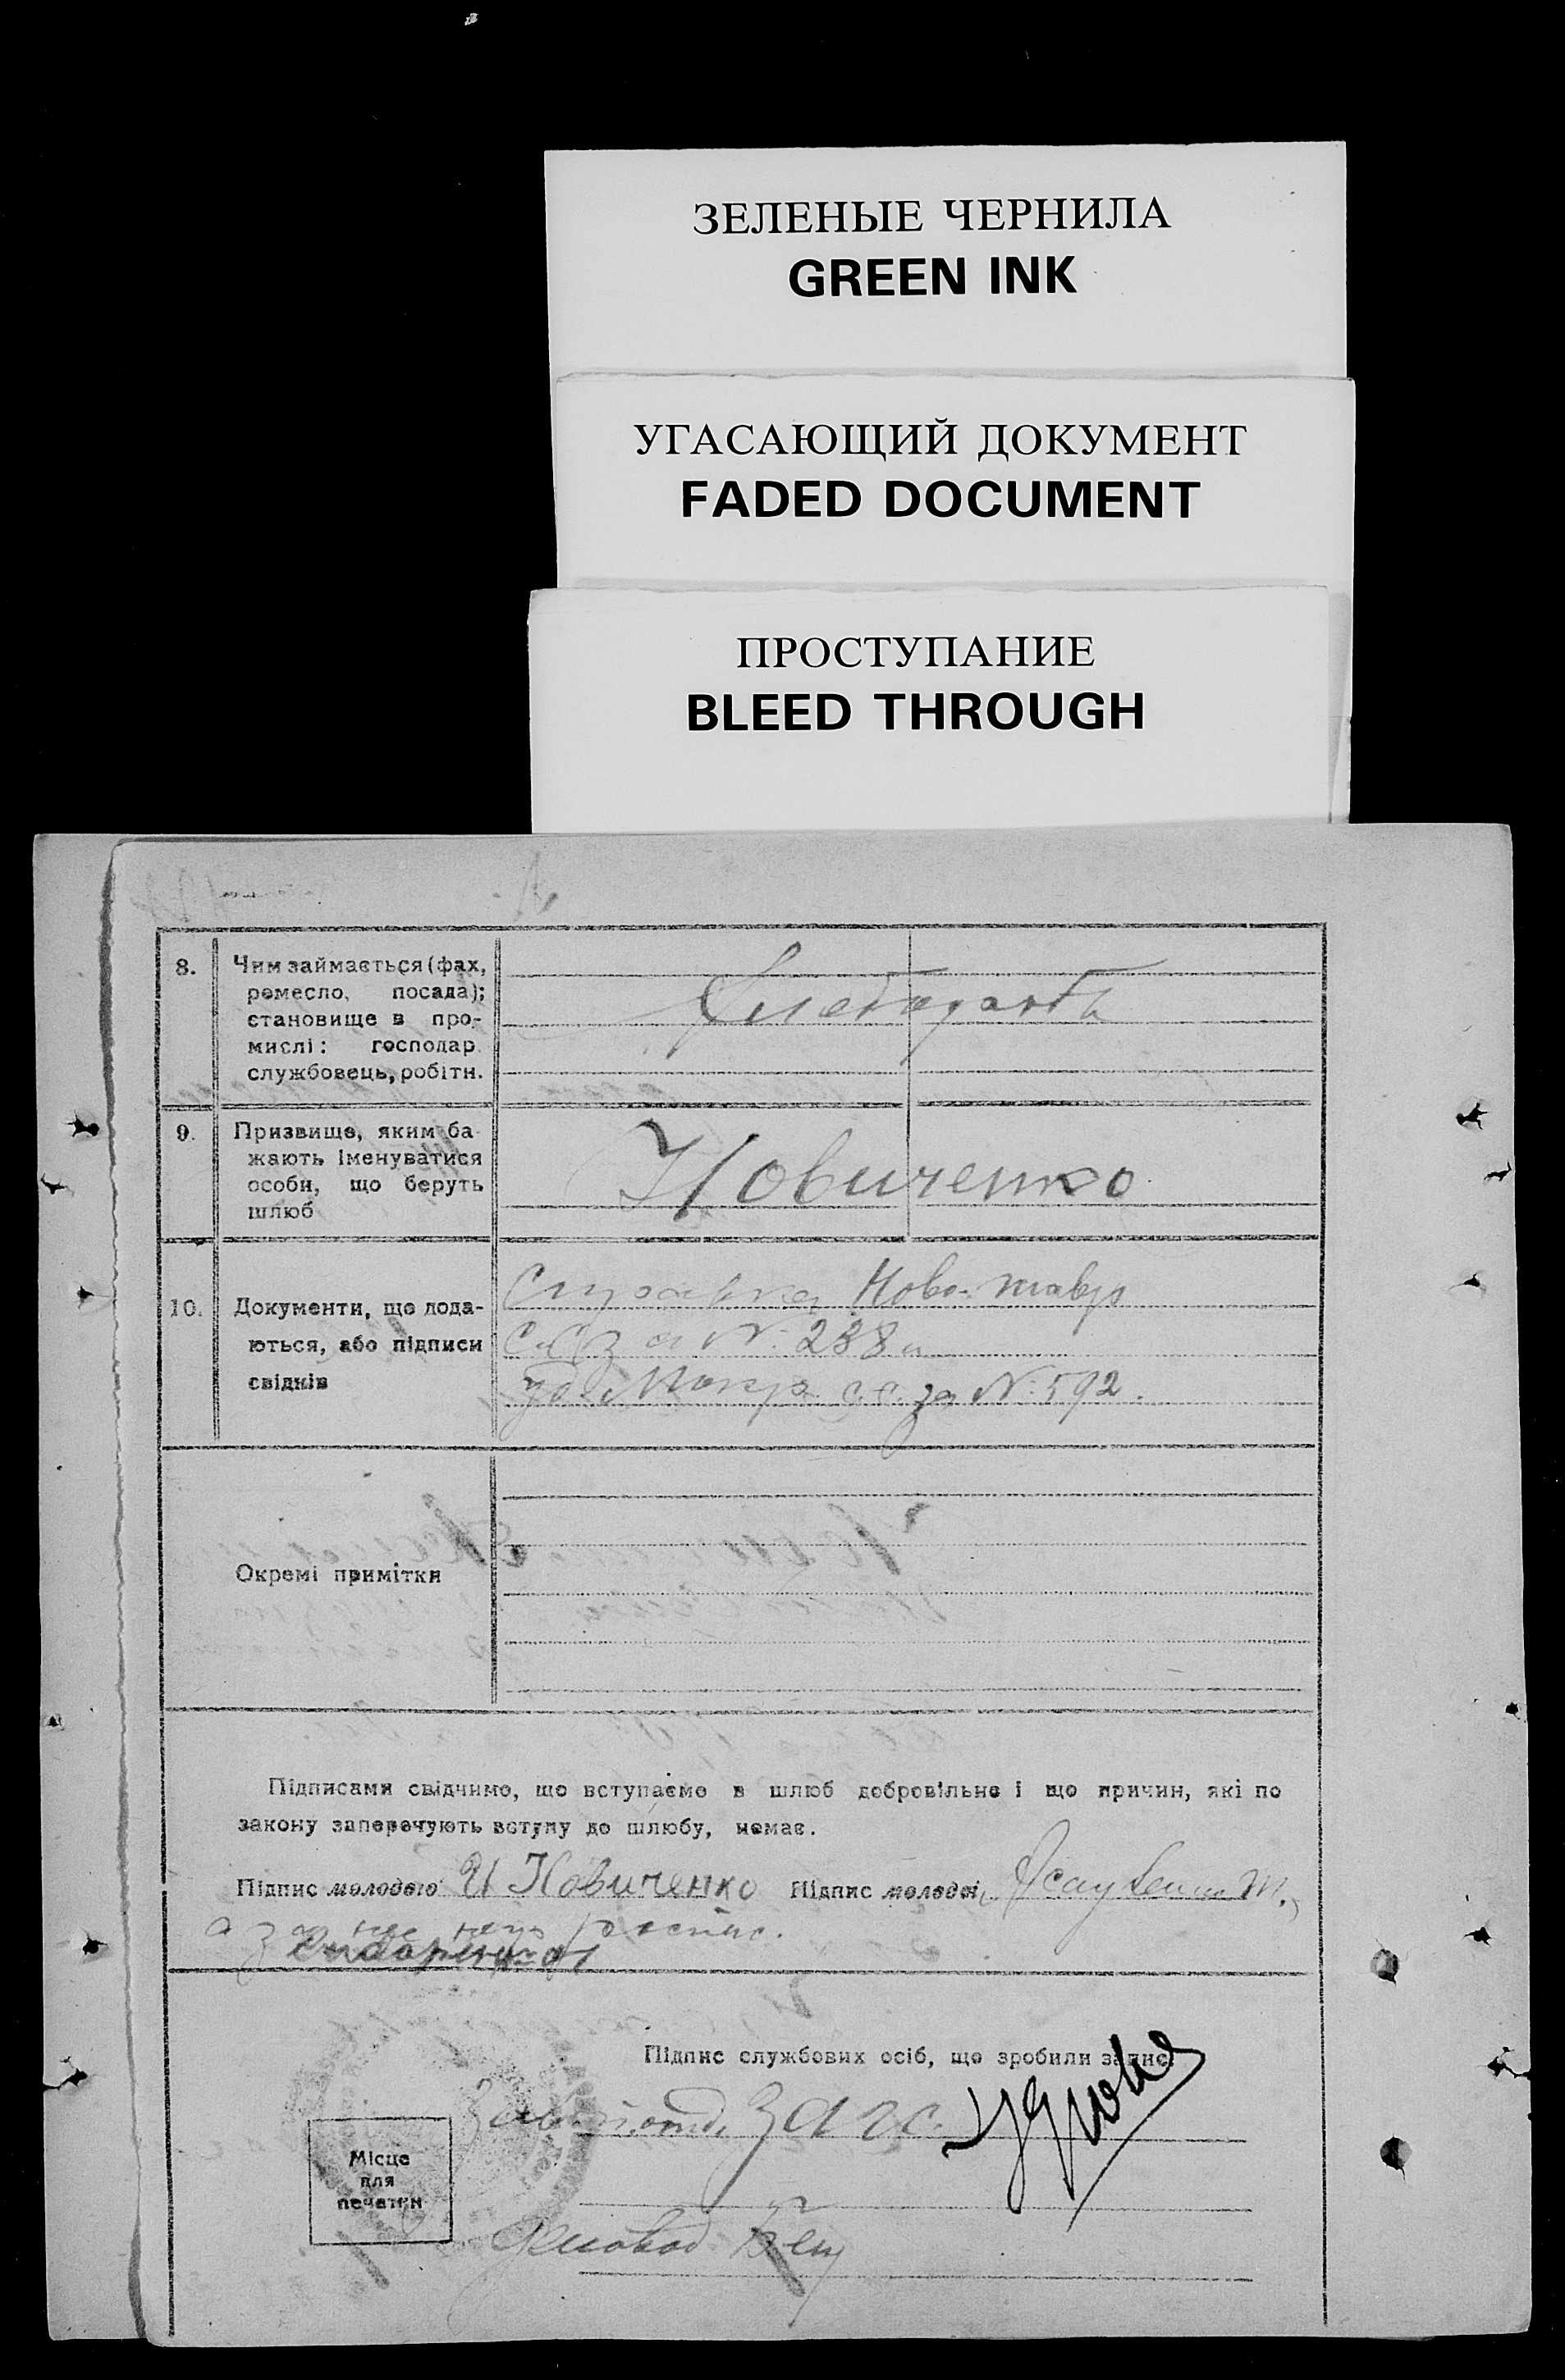 ЗЕЛЕНЫЕ ЧЕРНИЛА
GREEN INK
УГАСАЮЩИЙ ДОКУМЕНТ
FADED DOCUMENT
ПРОСТУПАНИЕ
BLEED THROUGH
8.
Чим займається (фах,
ремесло, посада);
становище в про-
мислі: господар.
службовець, робітн.
9.
Призвище, яким ба-
жають іменуватися
особи, що беруть
шлюб
Новиченко
10.
Документи, що дода-
ються, або підписи
свідків
Ново-
№ 288
с.с. за № 592.
Окремі примітки
Підписами свідчимо, що вступаємо в шлюб добровільно і що причин, які по
закону заперечують вступу до шлюбу, немає.
Підпис молодого И Новиченко Підпис молодої
Підпис службових осіб, що зробили запис:
загс.
Місце
для
печатки
Діловод